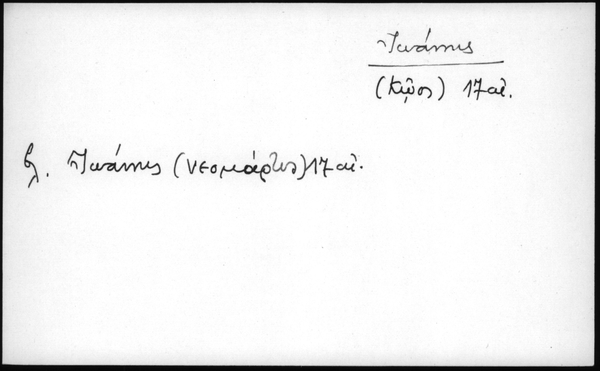 Ἰωάννης
(Κῶος) 17 αἰ.
βλ. Ἰωάννης (νεομάρτυς) 17 αἰ.